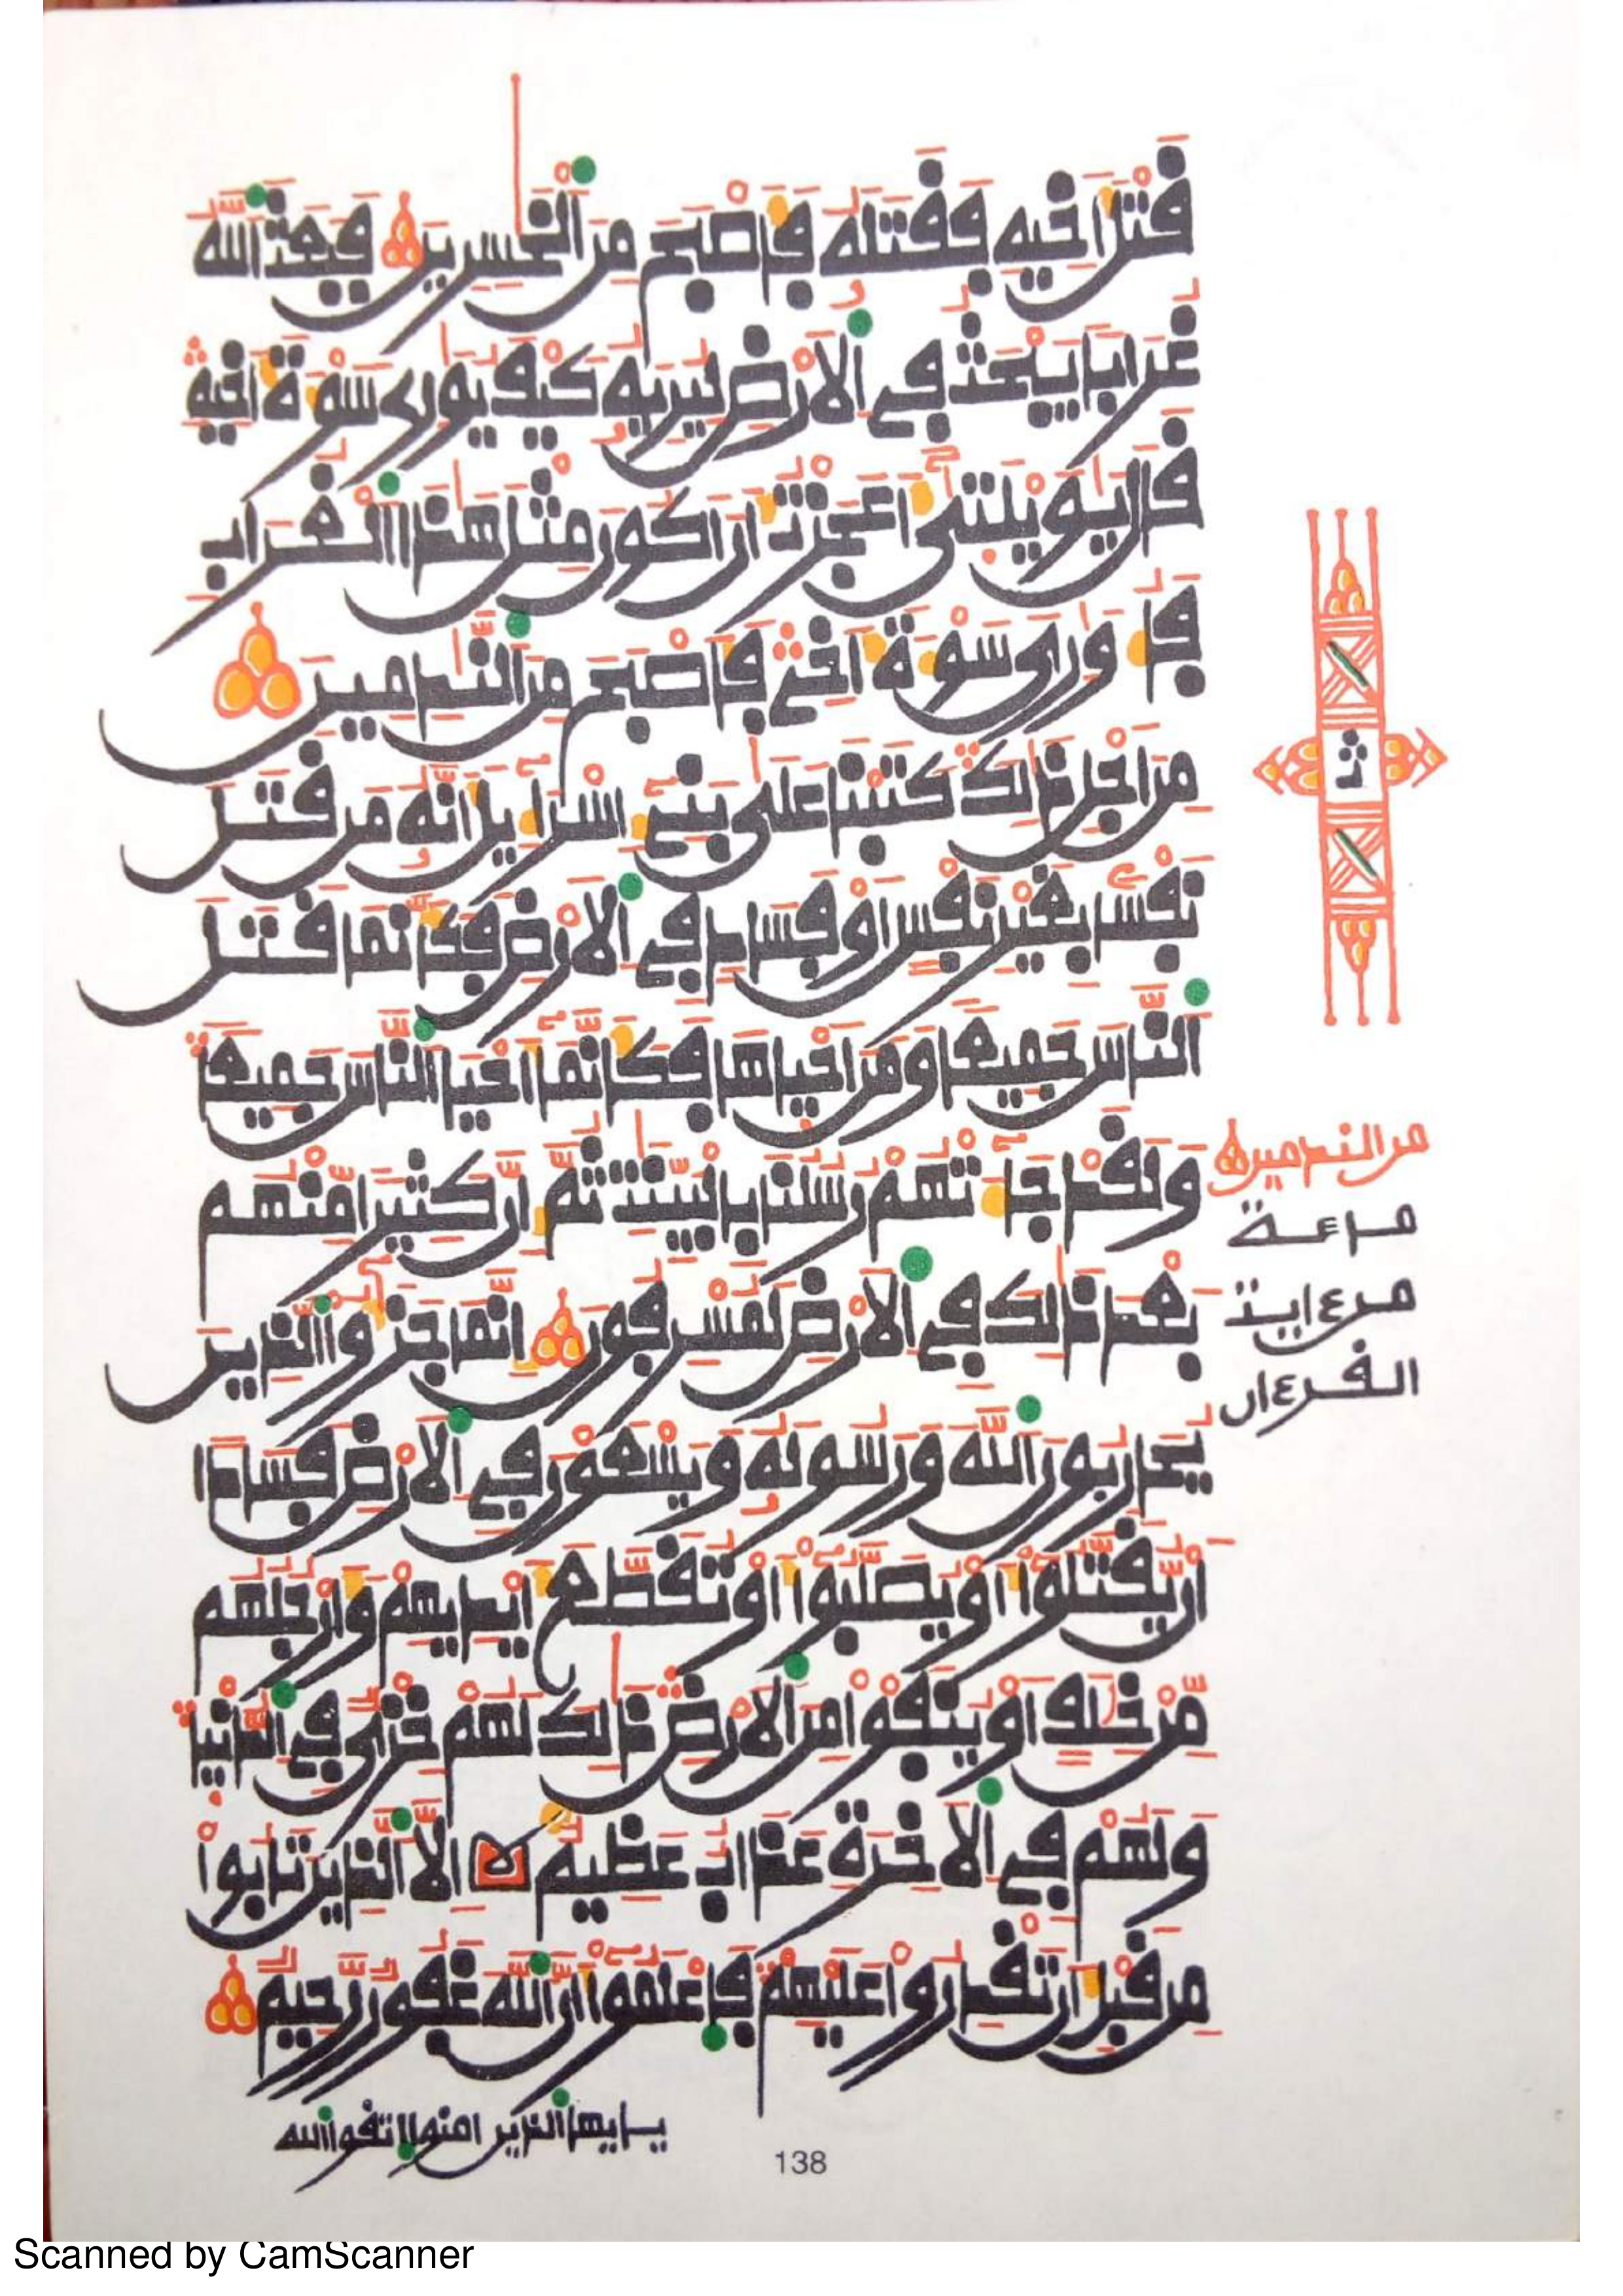 قَتْلَ أَخِيهِ فَقَتَلَهُ فَأَصْبَحَ مِنَ ٱلْخَٰسِرِينَ فَبَعَثَ ٱللَّهُ
غُرَابًا يَبْحَثُ فِي ٱلْأَرْضِ لِيُرِيَهُۥ كَيْفَ يُوَٰرِي سَوْءَةَ أَخِيهِ
قَالَ يَٰوَيْلَتَىٰٓ أَعَجَزْتُ أَنْ أَكُونَ مِثْلَ هَٰذَا ٱلْغُرَابِ
فَأُوَٰرِيَ سَوْءَةَ أَخِي فَأَصْبَحَ مِنَ ٱلنَّٰدِمِينَ
مِنَ اجْلِ ذَٰلِكَ كَتَبْنَا عَلَىٰ بَنِيٓ إِسْرَآءِيلَ أَنَّهُۥ مَن قَتَلَ
نَفْسًۢا بِغَيْرِ نَفْسٍ أَوْ فَسَادٍ فِي ٱلْأَرْضِ فَكَأَنَّمَا قَتَلَ
ٱلنَّاسَ جَمِيعًا وَمَنَ احْيَاهَا فَكَأَنَّمَآ أَحْيَا ٱلنَّاسَ جَمِيعًا
وَلَقَدْ جَآءَتْهُمْ رُسُلُنَا بِالْبَيِّنَٰتِ ثُمَّ إِنَّ كَثِيرًا مِّنْهُم
بَعْدَ ذَٰلِكَ فِي ٱلْأَرْضِ لَمُسْرِفُونَ إِنَّمَا جَزَٰٓؤُا ٱلَّذِينَ
يُحَارِبُونَ ٱللَّهَ وَرَسُولَهُۥ وَيَسْعَوْنَ فِي ٱلْأَرْضِ فَسَادًا
أَنْ يُّقَتَّلُوٓا۟ أَوْ يُصَلَّبُوٓا۟ أَوْ تُقَطَّعَ أَيْدِيهِمْ وَأَرْجُلُهُم
مِّنْ خِلَٰفٍ أَوْ يُنفَوْا۟ مِنَ ٱلْأَرْضِ ذَٰلِكَ لَهُمْ خِزْيٌ فِي ٱلدُّنْيَا
وَلَهُمْ فِي ٱلْأَخِرَةِ عَذَابٌ عَظِيمٌ إِلَّا ٱلَّذِينَ تَابُوا۟
مِن قَبْلِ أَن تَقْدِرُوا۟ عَلَيْهِمْ فَٱعْلَمُوٓا۟ أَنَّ ٱللَّهَ غَفُورٌ رَّحِيمٌ
يـايها ٱلذين امنوا اتقوا ٱلله
من الندمين
مـاعـة
مـن ءايـت
الـقـرءان
138
Scanned by CamScanner